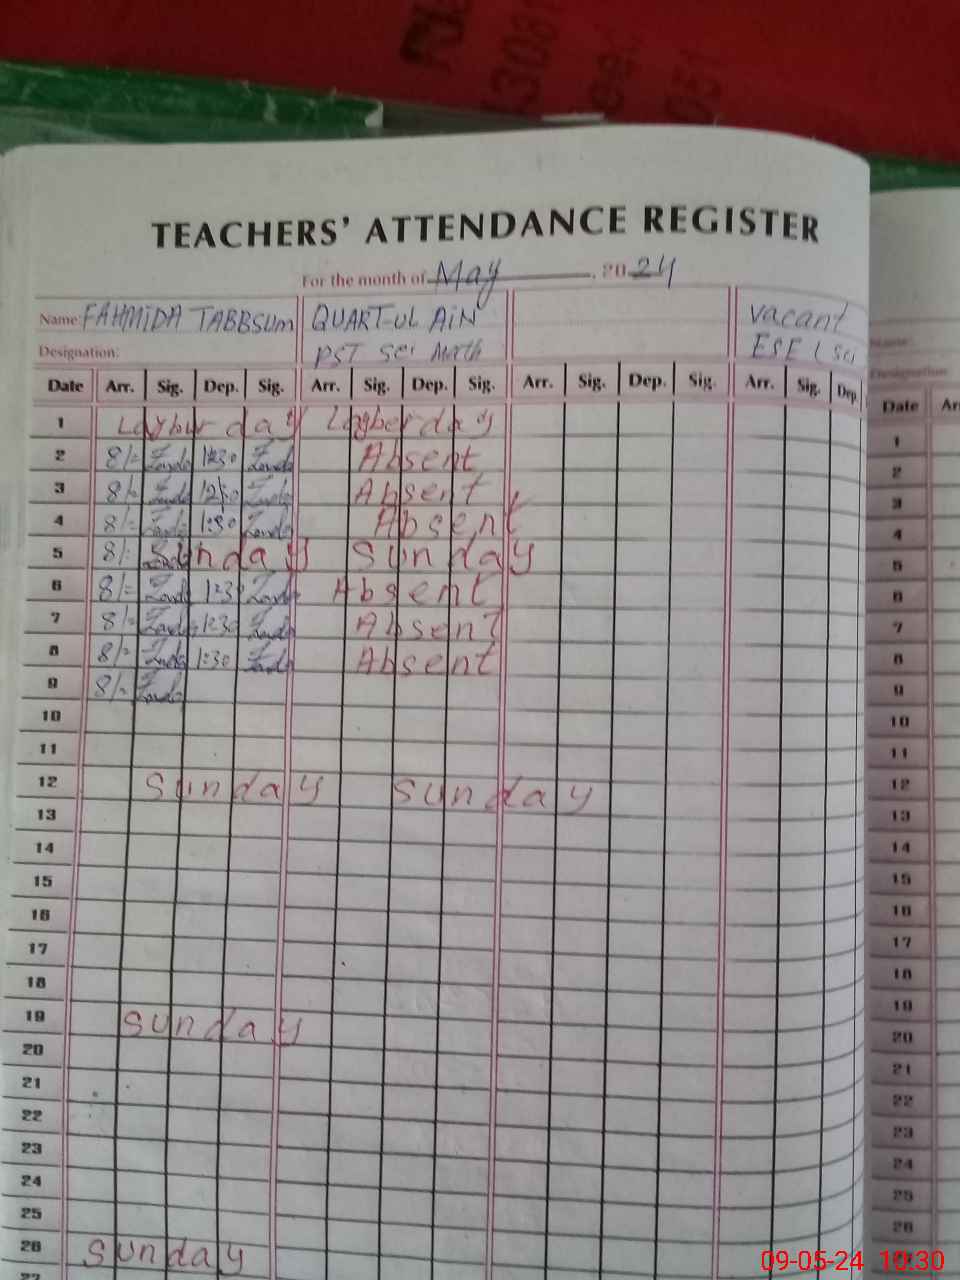 TEACHERS' ATTENDANCE REGISTER
For the month of May , 20 24
Name: FAHMIDA TABBSUM QUART-UL AIN vacant
Designation: PST Sci Math ESE ( Sci
Date Arr. Sig. Dep. Sig. Arr. Sig. Dep. Sig. Arr. Sig. Dep. Sig. Arr. Sig. Dep.
1 Laybur day Layber day
2 8/= 1:30 Absent
3 8/= Absent
4 8/= 1:30 Absent
5 8/= Sunday Sunday
6 8/= 1:30 Absent
7 8/= 1:30 Absent
8 8/= 1:30 Absent
9 8/=
10
11
12 Sunday Sunday
13
14
15
16
17
18
19 Sunday
20
21
22
23
24
25
26 Sunday
27
Name:
Designation
Date Ar
1
2
3
4
5
6
7
8
9
10
11
12
13
14
15
16
17
18
19
20
21
22
23
24
25
26
09-05-24 10:30